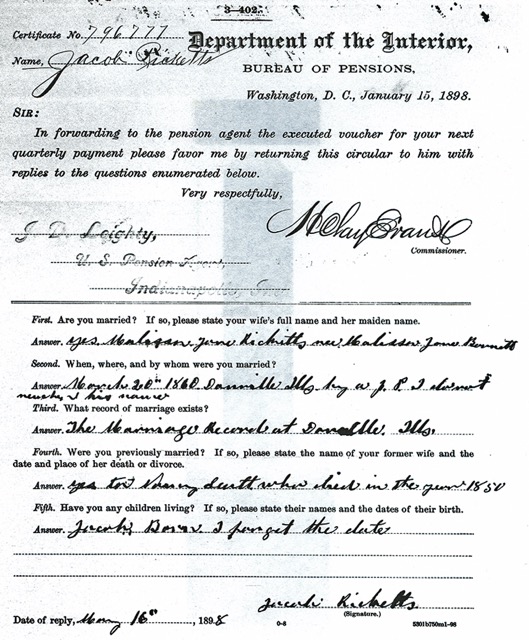 3-402.
Certificate No. 796777
Department of the Interior,
Name, Jacob Ricketts
BUREAU OF PENSIONS,
Washington, D. C., January 15, 1898.
SIR:
In forwarding to the pension agent the executed voucher for your next
quarterly payment please favor me by returning this circular to him with
replies to the questions enumerated below.
Very respectfully,
J. D. Leighty,
H Clay Evans
Commissioner.
U. S. Pension Agent,
Indianapolis, Ind.
First. Are you married? If so, please state your wife's full name and her maiden name.
Answer. yes Malisson Jane Ricketts nee Malisson Jane Bennett
Second. When, where, and by whom were you married?
Answer. March 20th 1860 Danville Ills by a J. P. I do not
his name
Third. What record of marriage exists?
Answer. The Marriage Record at Danville. Ills.
Fourth. Were you previously married? If so, please state the name of your former wife and the
date and place of her death or divorce.
Answer. yes to who died in the year 1850
Fifth. Have you any children living? If so, please state their names and the dates of their birth.
Answer. Jacob, Born I forget the date
Jacob Ricketts
(Signature.)
Date of reply, May 16th, 1898
0-8
5301b750m1-98